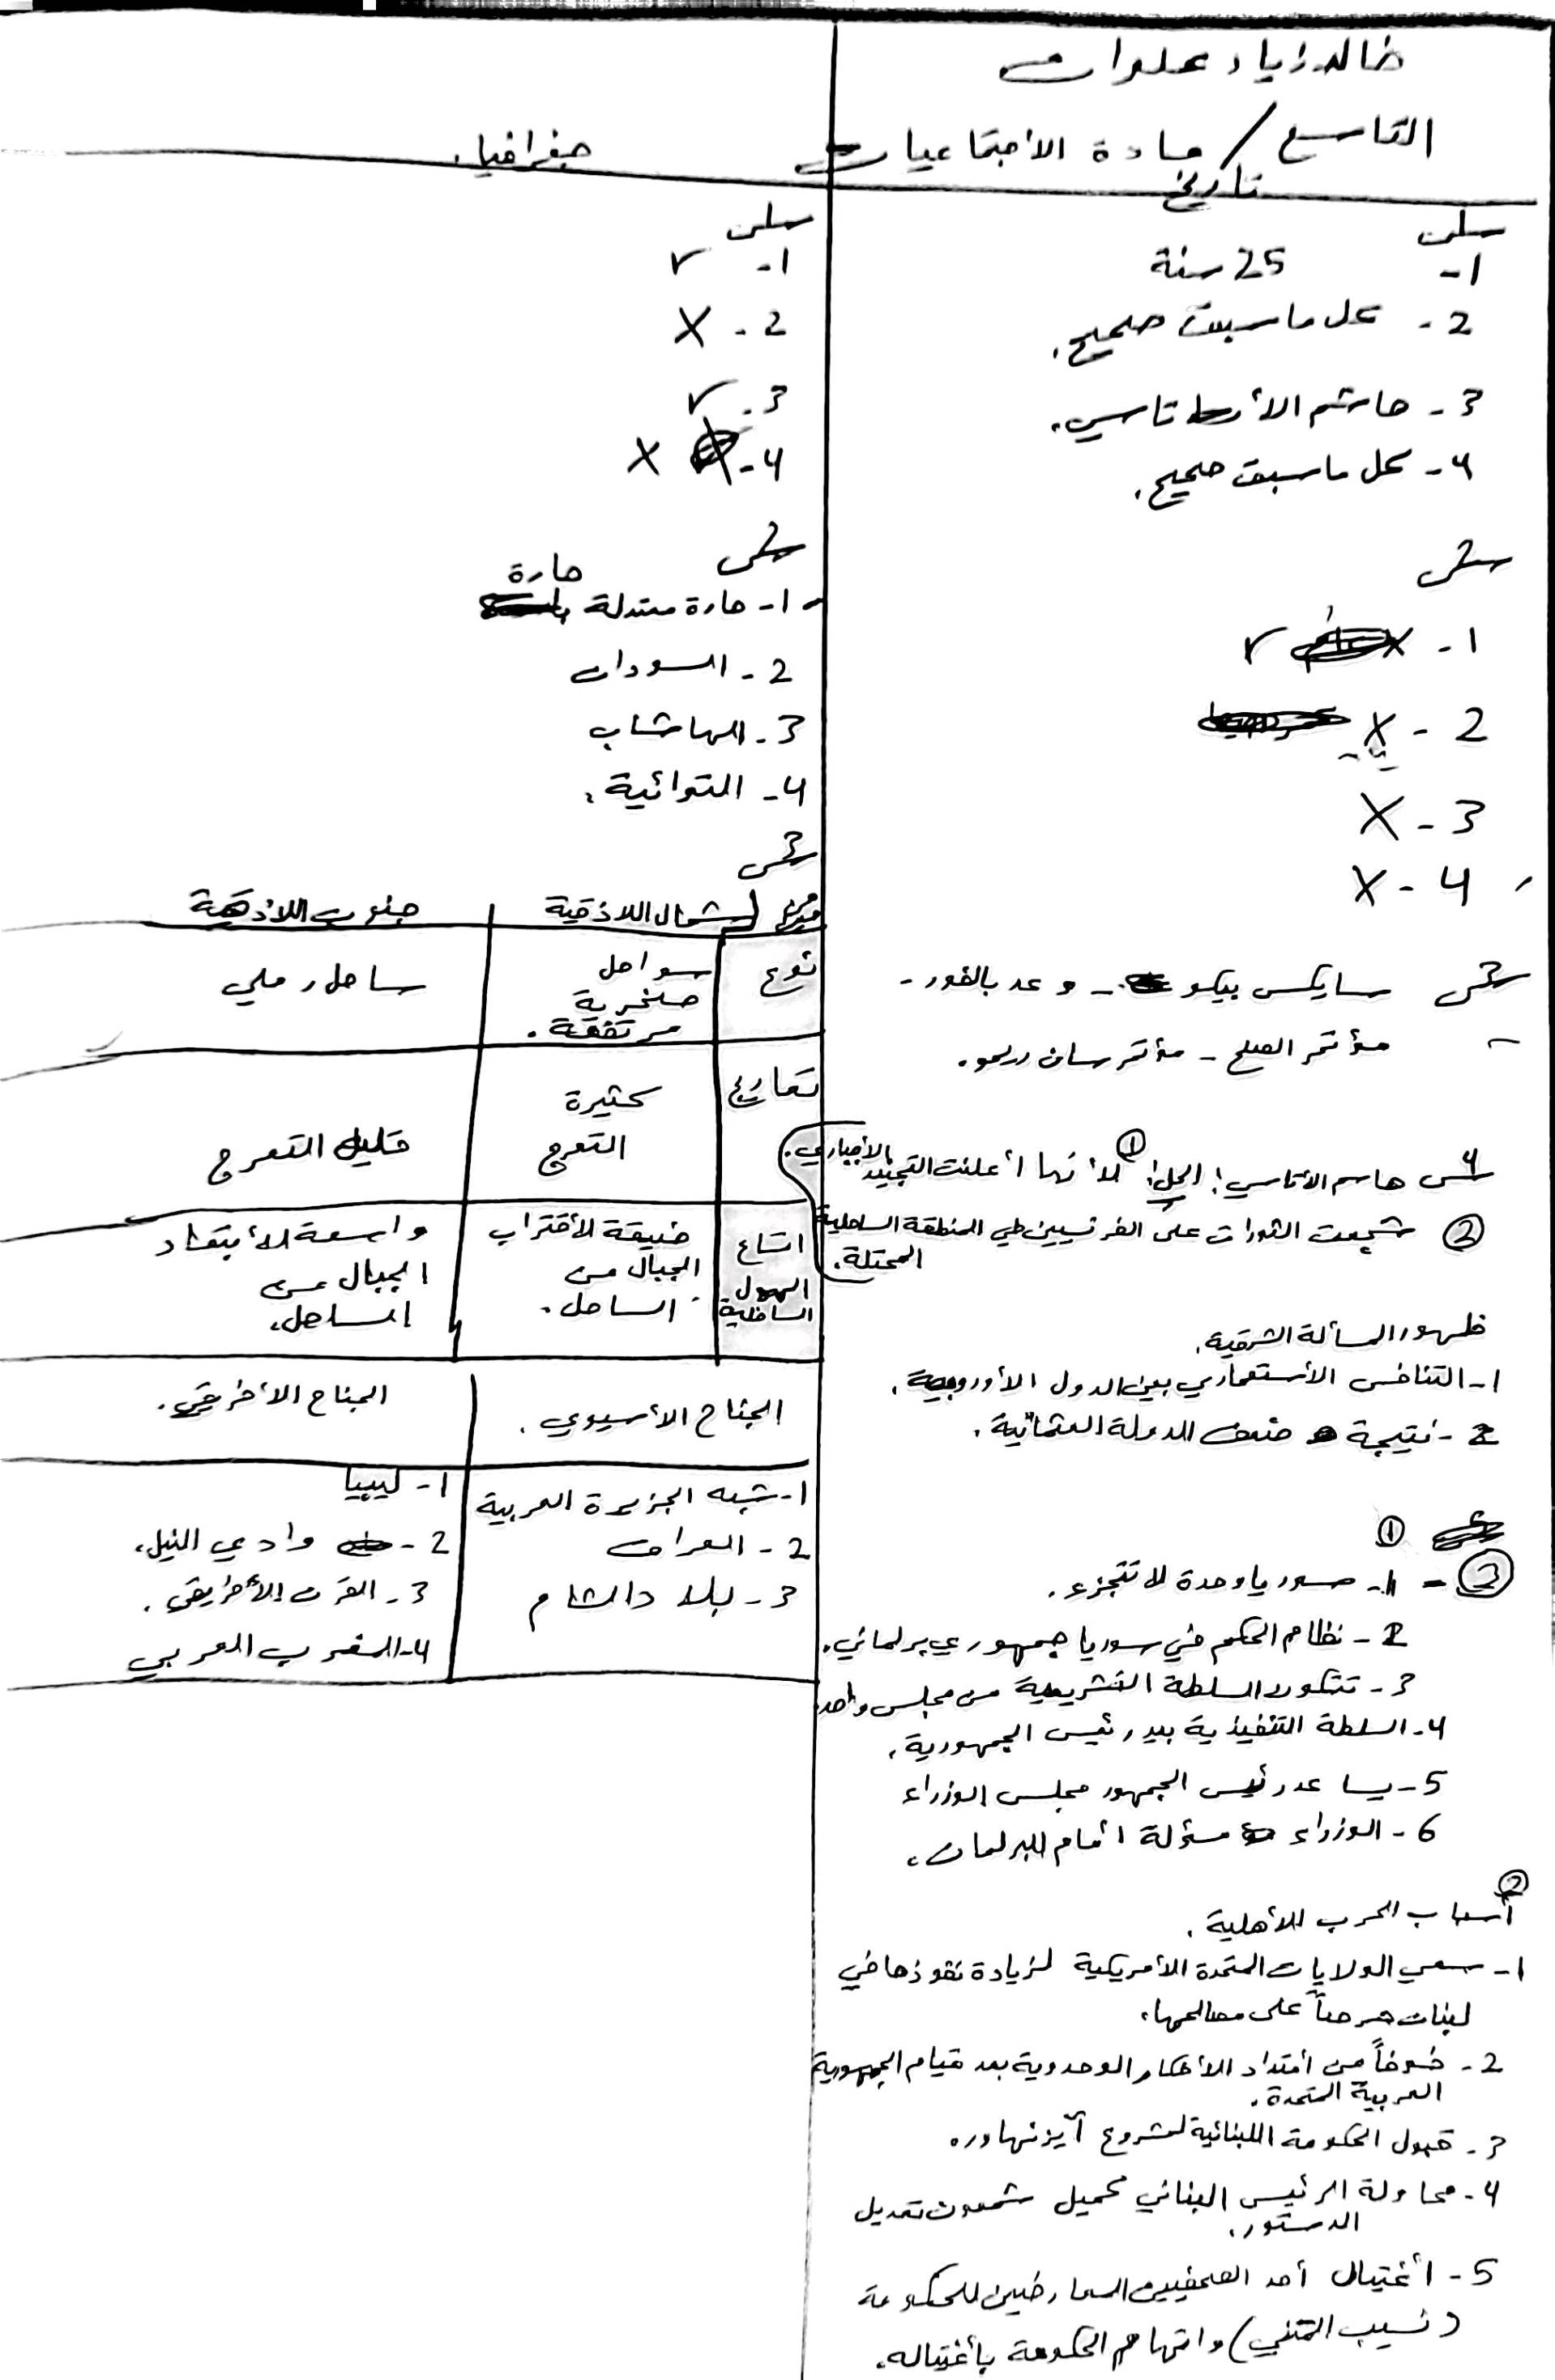 خالد زياد علوان
التاسع / مادة الأجتماعيات
تاريخ
س1
1- 25 سنة
2- كل ما سبق صحيح.
3- هاشم الأتاسي.
4- كل ما سبق صحيح.
س2
1- ✓
2- X
3- X
4- X
س3 سايكس بيكو - وعد بالفور -
مؤتمر الصلح - مؤتمر سان ريمو.
س4 هاشم الأتاسي: الحل: ① لأنها أعلنت التجنيد الأجباري.
② شجعت الثورات على الفرنسيين في المنطقة الساحلية
المحتلة.
ظهور المسألة الشرقية.
1- التنافس الأستعماري بين الدول الأوروبية.
2- نتيجة ضعف الدولة العثمانية.
①
③ - 1- سوريا وحدة لا تتجزء.
2- نظام الحكم في سوريا جمهوري برلماني.
3- تتكون السلطة التشريعية من مجلس واحد.
4- السلطة التنفيذية بيد رئيس الجمهورية.
5- يساعد رئيس الجمهور مجلس الوزراء
6- الوزراء مسؤلة أمام البرلمان.
②
أسباب الحرب الأهلية.
1- سعي الولايات المتحدة الأمريكية لزيادة نفوذها في
لبنان حرصاً على مصالحها.
2- خوفاً من أمتداد الأفكار الوحدوية بعد قيام الجمهورية
العربية المتحدة.
3- قبول الحكومة اللبنانية لمشروع آيزنهاور.
4- محاولة الرئيس البناني كميل شمعون تعديل
الدستور.
5- أغتيال أحد الصحفيين المعارضين للحكومة
(نسيب المتني) واتهام الحكومة بأغتياله.
جغرافيا.
س1
1- ✓
2- X
3- ✓
4- X
س2
حارة
1- حارة معتدلة
2- السودان
3- الهاشاب
4- التوائية.
س3
شمال اللاذقية جنوب اللاذقية
نوع سواحل ساحل رملي
صخرية
مرتفعة.
تعاريج كثيرة
التعرج قليل التعرج
اتساع ضيقة لأقتراب واسعة لأبتعاد
السهول الجبال من الجبال عن
الساحلية الساحل. الساحل.
الجناح الأسيوي. الجناح الأفريقي.
1- شبه الجزيرة العربية 1- ليبيا
2- العراق 2- وادي النيل.
3- بلاد الشام 3- القرن الأفريقي.
4- المغرب العربي